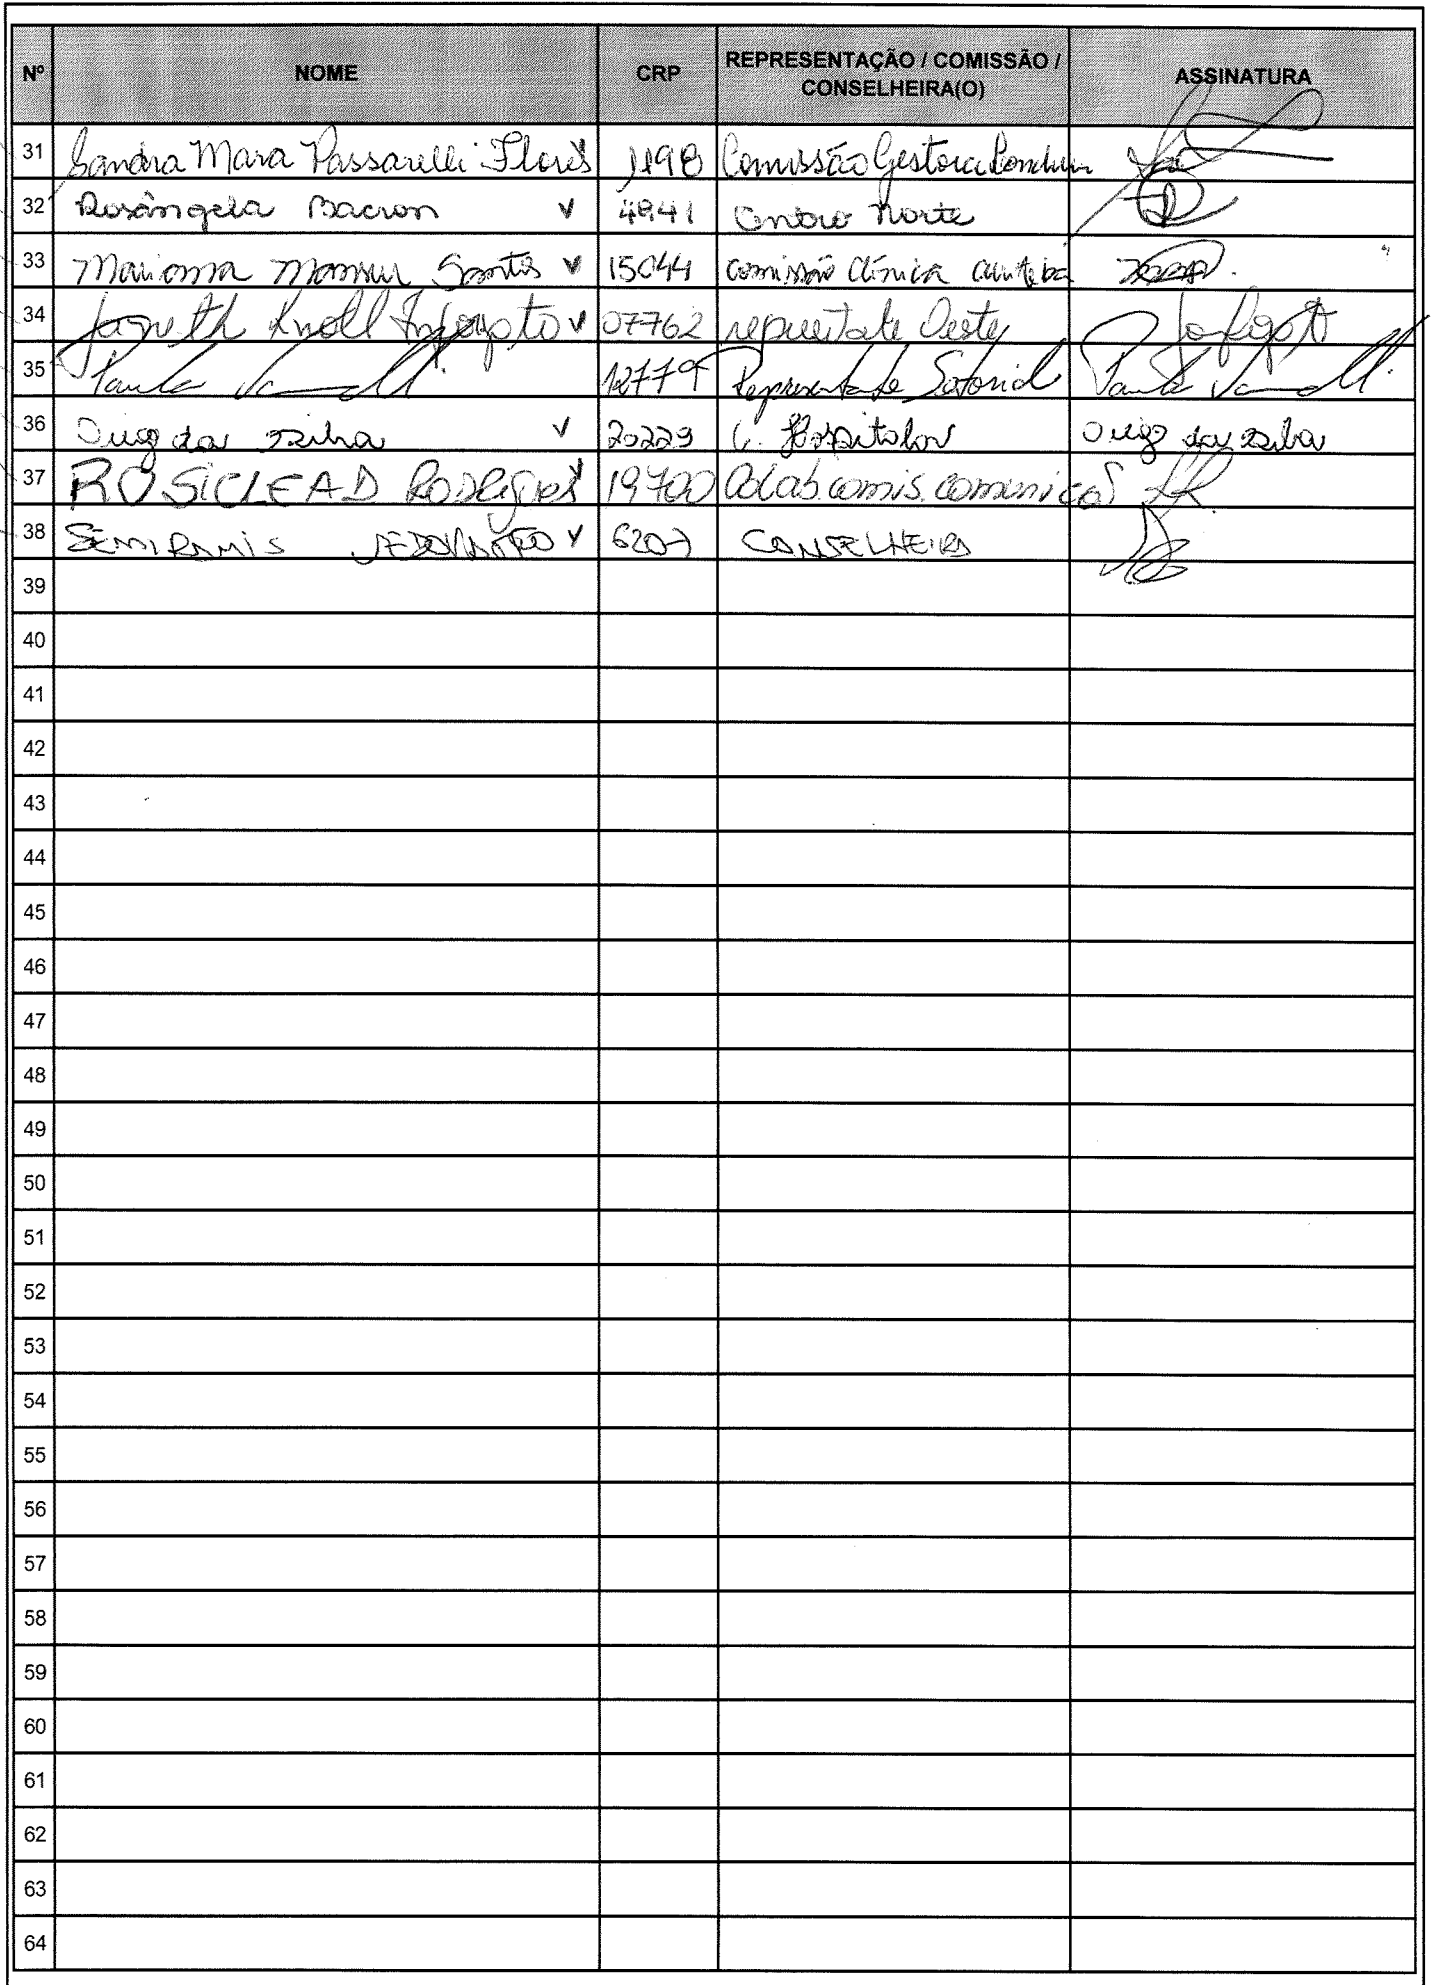 Nº NOME CRP REPRESENTAÇÃO / COMISSÃO / CONSELHEIRA(O) ASSINATURA
31 Sandra Mara Passarelli Flores 1198 Comissão Gestora
32 Rosângela Bacron 4941 Centro Norte
33 Marianna Mansur Santos 15044 comissão clínica
34 Janeth Knoll 07762 Oeste
35 Paula 12779 Representante Setorial Paula
36 da silva 20229 C. Hospitalar da silva
37 ROSICLEAD Rodrigues 19700 Colab. comis.
38 SEMIRAMIS 6207 CONSELHEIRA
39
40
41
42
43
44
45
46
47
48
49
50
51
52
53
54
55
56
57
58
59
60
61
62
63
64